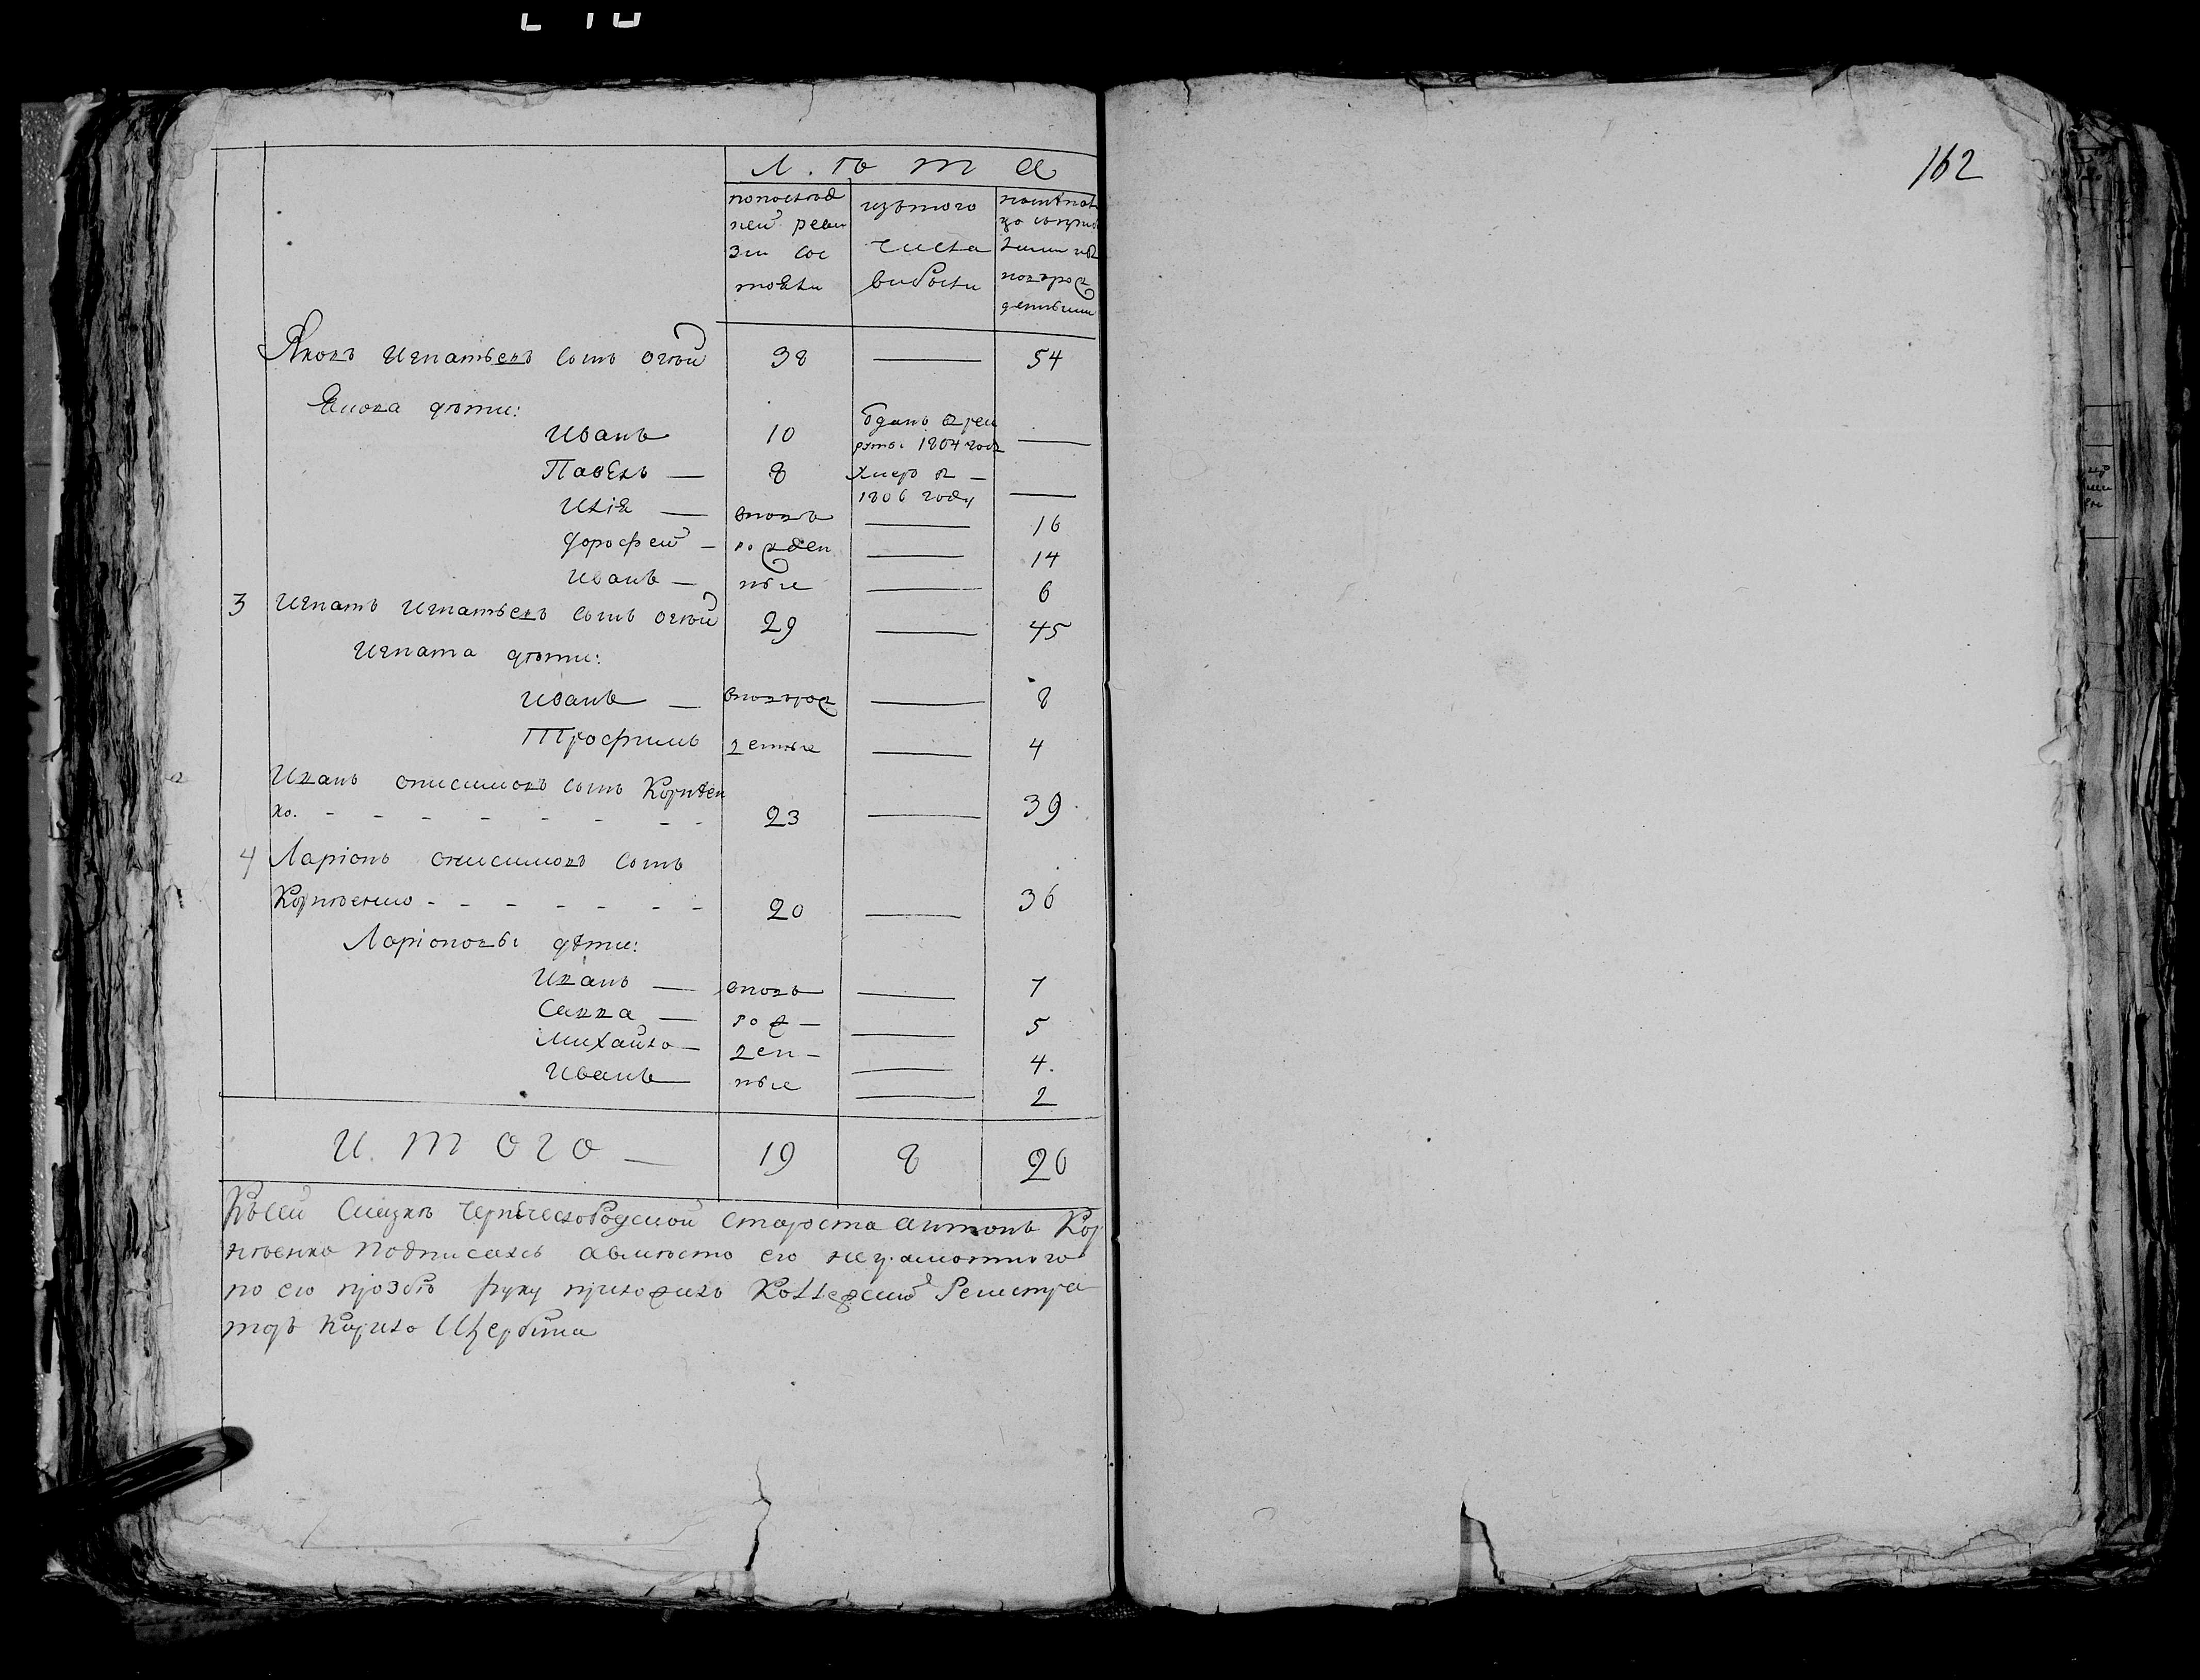 162
Л ѣ т а
попослѣд
ней реви
зіи сос
тояли
изътого
числа
выбыли
Яковъ Игнатьевъ сынъ 38 — 54
Якова дѣти:
Иванъ 10 —
отданъ врек
руты 1804 года
Павелъ — 8 —
умеръ в —
1806 году
Илія — вновь — 16
Дорофей — рожден — 14
Иванъ — ные — 6
3 Игнатъ Игнатьевъ сынъ 29 — 45
Игната дѣти:
Иванъ — вновърож — 8
Трофимъ денные — 4
Иванъ онисимовъ сынъ Корнѣен
ко. - - - - - - - - 23 — 39
4 Ларіонъ онисимовъ сынъ
Корнѣенко - - - - - - - 20 — 36
Ларіоновы дѣти:
Иванъ — вновь — 7
Савва — рож — — 5
Михайло — ден — — 4.
Иванъ ные — 2
И т о г о — 19 8 20
Староста антонъ Кор
нѣенко подписалъ авмѣсто его неграмотного
по его прозбѣ руку приложилъКоллежский Регистра
торъ Кирило Щербина